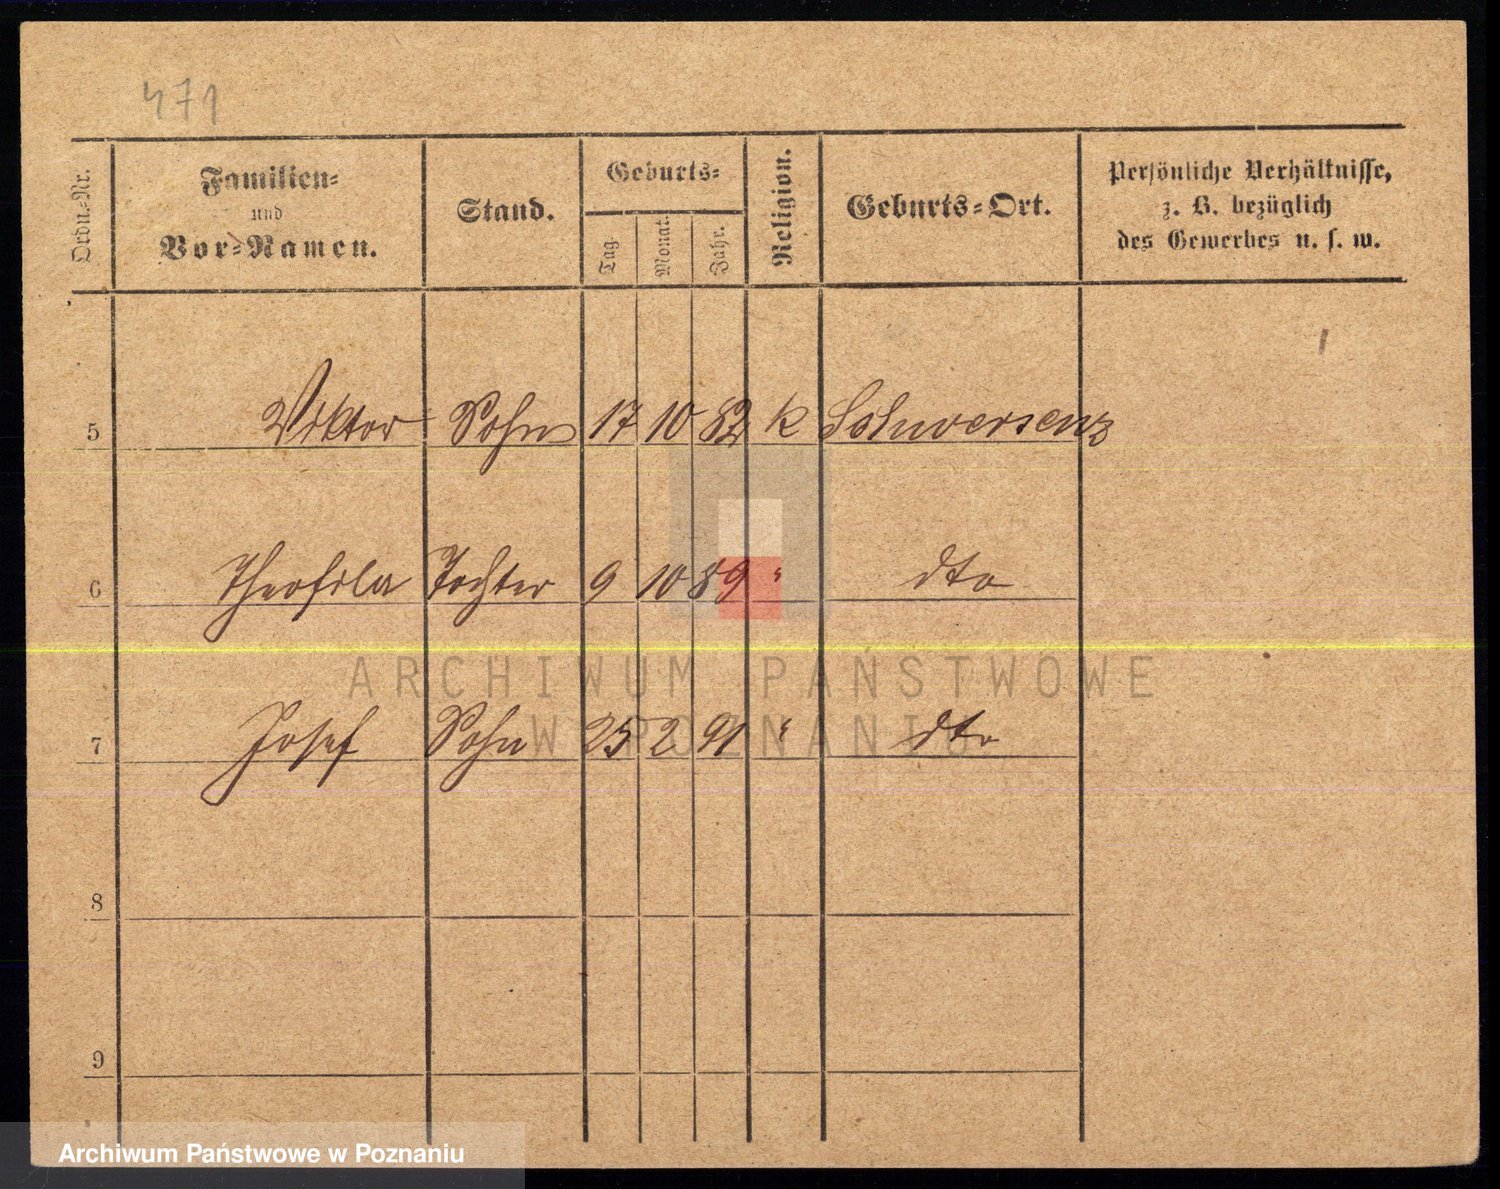 471
Ordn.-Nr.
Familien-
und
Vor-Namen.
Stand.
Geburts-
Tag.
Monat.
Jahr.
Religion.
Geburts-Ort.
Persönliche Verhältnisse,
z. B. bezüglich
des Gewerbes u. s. w.
5 Viktor Sohn 17 10 82 k Schwersenz
6 Theofila Tochter 9 10 89 " dto
7 Josef Sohn 25 2 91 " dto
8
9
ARCHIWUM PAŃSTWOWE
W POZNANIU
Archiwum Państwowe w Poznaniu